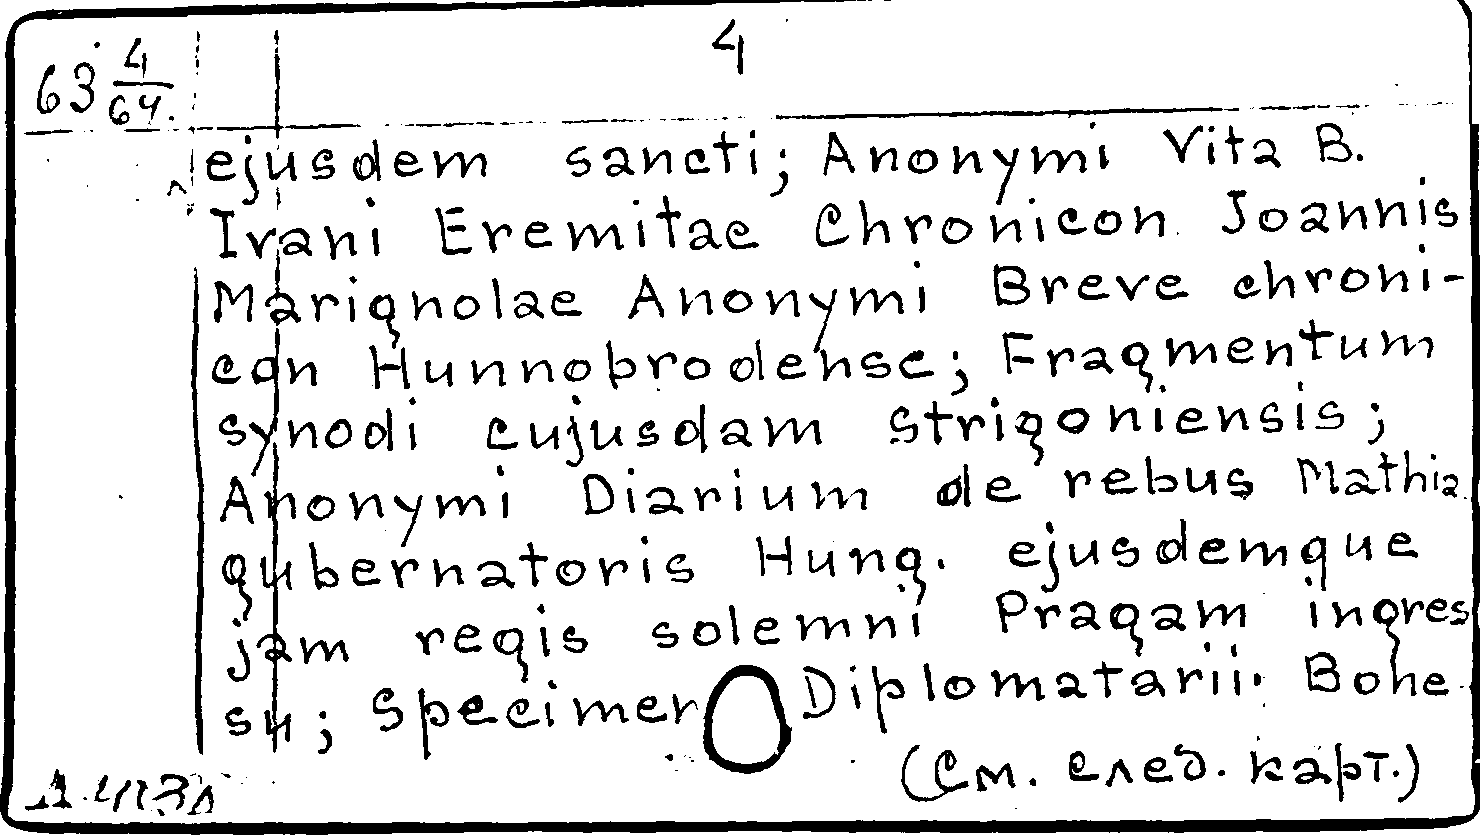 4
63 4/64.
ejusdem sancti; Anonymi Vita B.
Ivani Eremitae Chronicon Joannis
Marignolae Anonymi Breve chroni-
con Hunnobrodense; Fragmentum
synodi cujusdam strigoniensis;
Anonymi Diarium de rebus Mathia
gubernatoris Hung. ejusdemque
jam regis solemni Pragam ingres
su; Specimen Diplomatarii Bohe
(См. след. карт.)